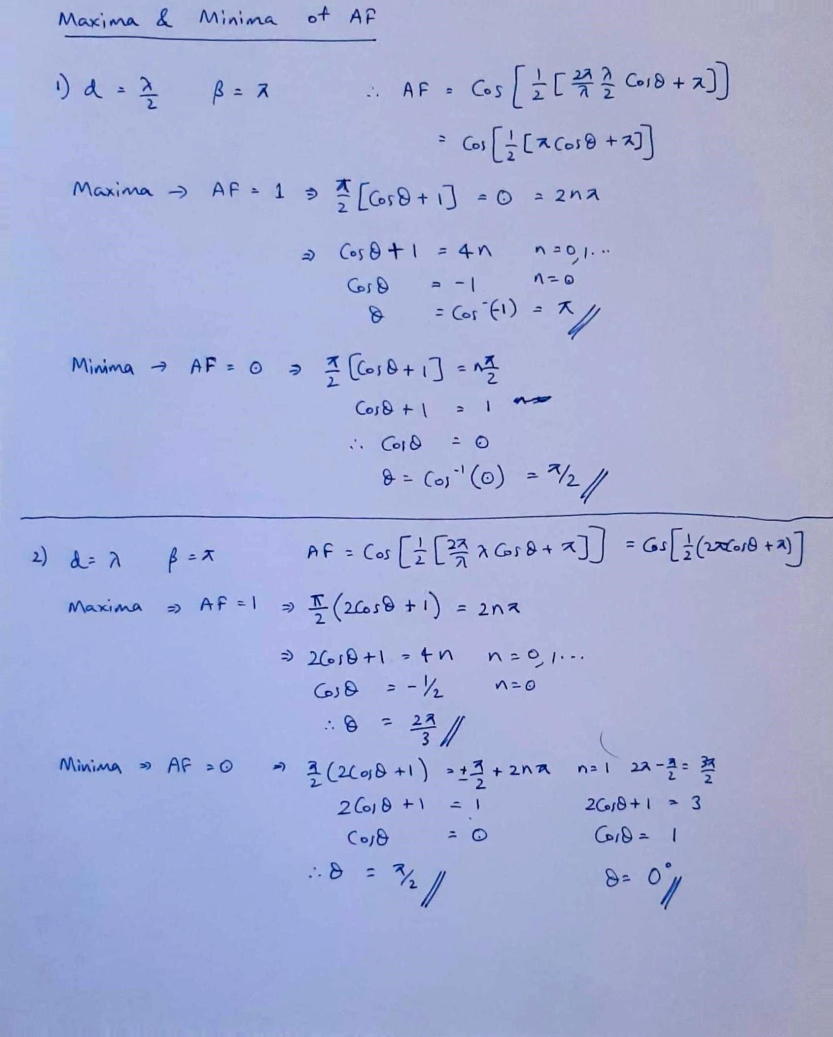 Maxima & Minima of AF
1) d = λ/2   β = π   ∴ AF = Cos[1/2[2π/λ λ/2 Cosθ + π]]
= Cos[1/2[π Cosθ + π]]
Maxima → AF = 1 ⇒ π/2[Cosθ + 1] = 0 = 2nπ
⇒ Cosθ + 1 = 4n   n = 0, 1...
Cosθ = -1   n = 0
θ = Cos⁻¹(-1) = π //
Minima → AF = 0 ⇒ π/2[Cosθ + 1] = nπ/2
Cosθ + 1 = 1
∴ Cosθ = 0
θ = Cos⁻¹(0) = π/2 //
2) d = λ   β = π   AF = Cos[1/2[2π/λ λ Cosθ + π]] = Cos[1/2(2πCosθ + π)]
Maxima ⇒ AF = 1 ⇒ π/2(2Cosθ + 1) = 2nπ
⇒ 2Cosθ + 1 = 4n   n = 0, 1...
Cosθ = -1/2   n = 0
∴ θ = 2π/3 //
Minima ⇒ AF = 0 ⇒ π/2(2Cosθ + 1) = ±π/2 + 2nπ   n = 1   2π - π/2 = 3π/2
2Cosθ + 1 = 1   2Cosθ + 1 = 3
Cosθ = 0   Cosθ = 1
∴ θ = π/2 //   θ = 0° //